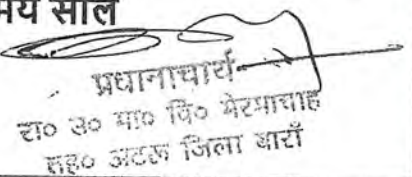 मय साल
प्रधानाचार्य
रा० उ० मा० वि० मेरमाचाह
तह० अटरू जिला बाराँ